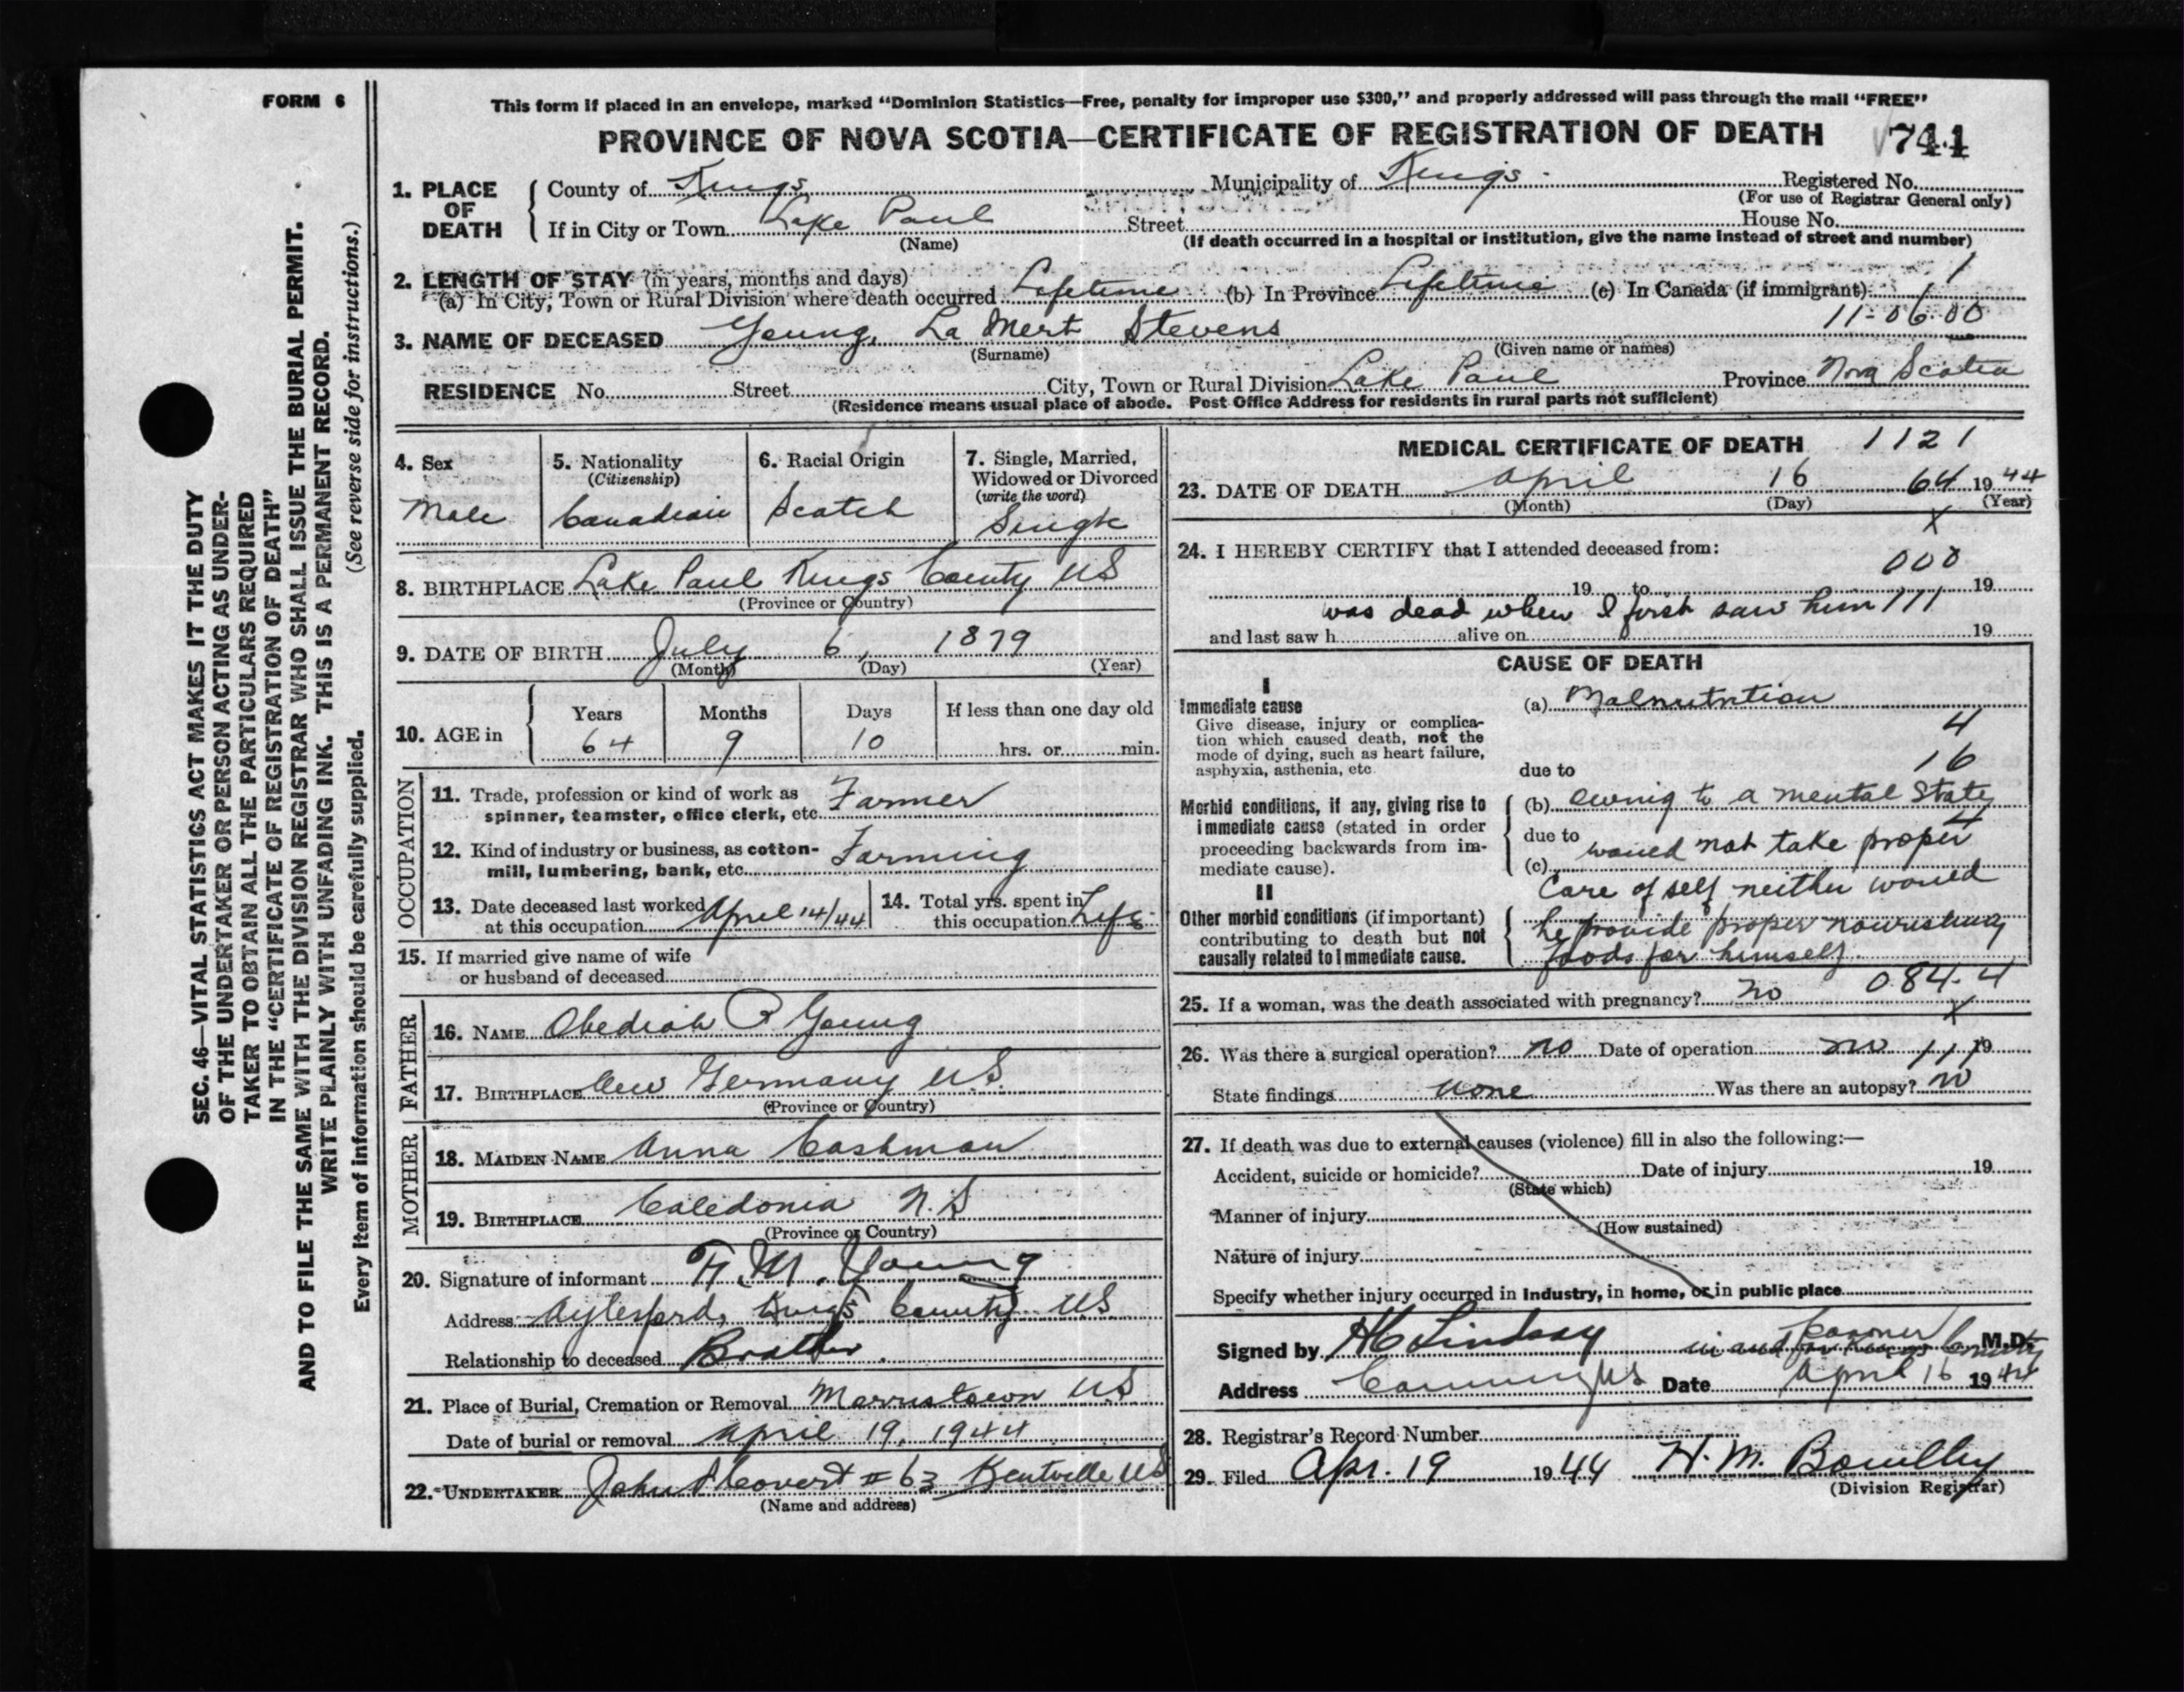 FORM 6
This form if placed in an envelope, marked "Dominion Statistics—Free, penalty for improper use $300," and properly addressed will pass through the mail "FREE"
PROVINCE OF NOVA SCOTIA—CERTIFICATE OF REGISTRATION OF DEATH 744
SEC. 46—VITAL STATISTICS ACT MAKES IT THE DUTY
OF THE UNDERTAKER OR PERSON ACTING AS UNDER-
TAKER TO OBTAIN ALL THE PARTICULARS REQUIRED
IN THE "CERTIFICATE OF REGISTRATION OF DEATH"
AND TO FILE THE SAME WITH THE DIVISION REGISTRAR WHO SHALL ISSUE THE BURIAL PERMIT.
WRITE PLAINLY WITH UNFADING INK. THIS IS A PERMANENT RECORD.
Every item of information should be carefully supplied. (See reverse side for instructions.)
1. PLACE OF DEATH
County of Kings Municipality of Kings Registered No.
(For use of Registrar General only)
If in City or Town Lake Paul Street House No.
(Name) (If death occurred in a hospital or institution, give the name instead of street and number)
2. LENGTH OF STAY (in years, months and days) 1
(a) In City, Town or Rural Division where death occurred Lifetime (b) In Province Lifetime (c) In Canada (if immigrant)
11-06.00
3. NAME OF DECEASED Young, La Mert Stevens
(Surname) (Given name or names)
RESIDENCE No. Street City, Town or Rural Division Lake Paul Province Nova Scotia
(Residence means usual place of abode. Post Office Address for residents in rural parts not sufficient)
4. Sex 5. Nationality 6. Racial Origin 7. Single, Married,
(Citizenship) Widowed or Divorced
(write the word)
Male Canadian Scotch Single
8. BIRTHPLACE Lake Paul Kings County NS
(Province or Country)
9. DATE OF BIRTH July 6, 1879
(Month) (Day) (Year)
10. AGE in Years Months Days If less than one day old
64 9 10 hrs. or min.
OCCUPATION
11. Trade, profession or kind of work as Farmer
spinner, teamster, office clerk, etc.
12. Kind of industry or business, as cotton- Farming
mill, lumbering, bank, etc.
13. Date deceased last worked 14. Total yrs. spent in
at this occupation April 14/44 this occupation Life
15. If married give name of wife
or husband of deceased
FATHER
16. NAME Obediah P Young
17. BIRTHPLACE New Germany N.S.
(Province or Country)
MOTHER
18. MAIDEN NAME Anna Cashman
19. BIRTHPLACE Caledonia N.S
(Province or Country)
20. Signature of informant M. Young
Address Aylesford, Kings County NS
Relationship to deceased Brother.
21. Place of Burial, Cremation or Removal Morristown NS
Date of burial or removal April 19, 1944
22. UNDERTAKER John Covert # 63 Kentville NS
(Name and address)
MEDICAL CERTIFICATE OF DEATH 1121
23. DATE OF DEATH April 16 64 1944
(Month) (Day) (Year)
X
24. I HEREBY CERTIFY that I attended deceased from:
000
19 to 19
was dead when I first saw him 111
and last saw h alive on 19
CAUSE OF DEATH
I
Immediate cause (a) Malnutrition
Give disease, injury or complica-
tion which caused death, not the 4
mode of dying, such as heart failure,
asphyxia, asthenia, etc. due to 16
Morbid conditions, if any, giving rise to (b) owing to a mental state
immediate cause (stated in order 4
proceeding backwards from im- due to would not take proper
mediate cause). (c)
II care of self, neither would
Other morbid conditions (if important) he provide proper nourishing
contributing to death but not
causally related to immediate cause. foods for himself.
25. If a woman, was the death associated with pregnancy? no 084.4
X
26. Was there a surgical operation? no Date of operation no 11 19
State findings none Was there an autopsy? no
27. If death was due to external causes (violence) fill in also the following:—
Accident, suicide or homicide? Date of injury 19
(State which)
Manner of injury
(How sustained)
Nature of injury
Specify whether injury occurred in industry, in home, or in public place
Coroner
Signed by H C Lindsay in and for Kings County M.D.
Address Canning NS Date April 16 1944
28. Registrar's Record Number
29. Filed Apr. 19 1944 H. M.
(Division Registrar)